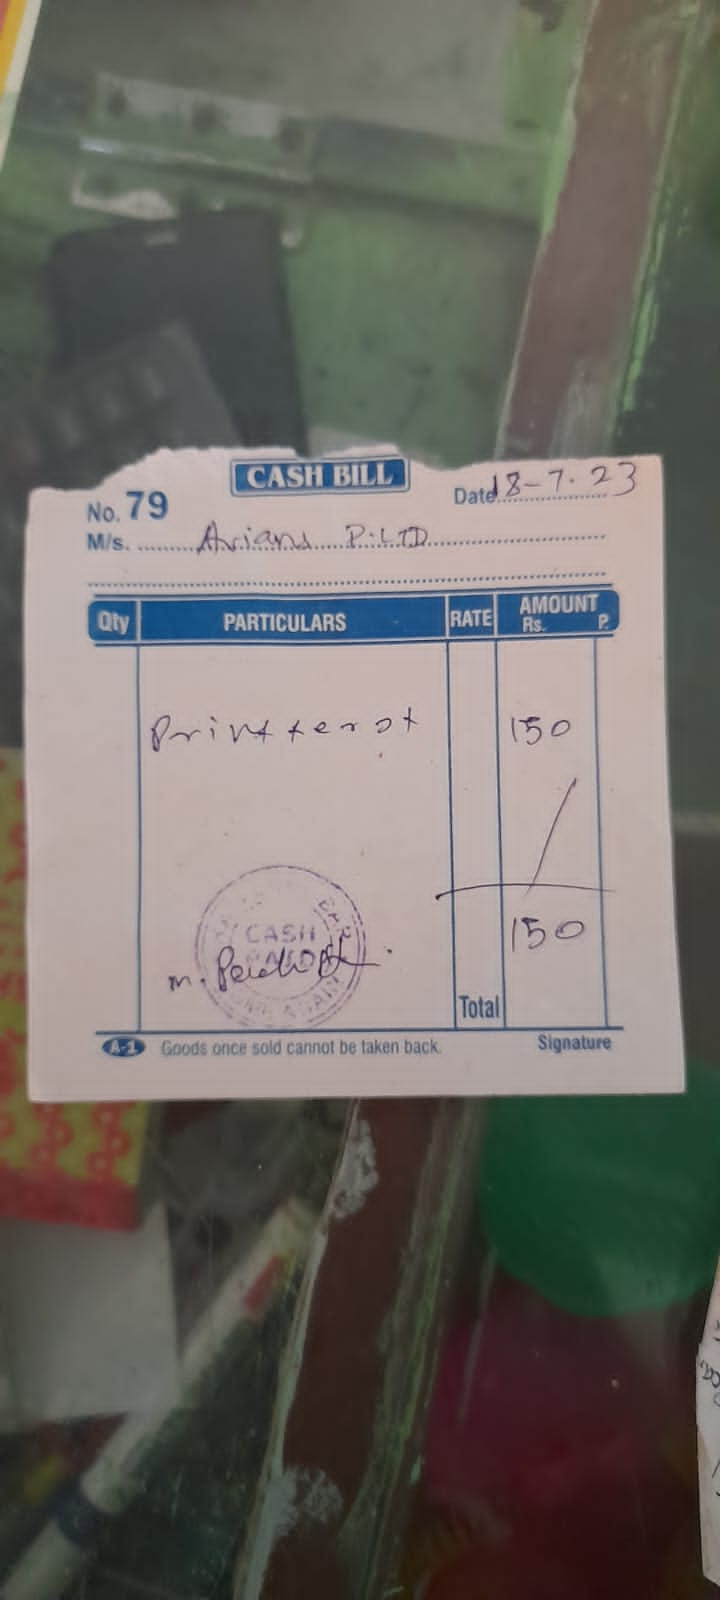 CASH BILL
No. 79
Date 18-7.23
M/s. P.LTD
Qty PARTICULARS RATE AMOUNT
Rs. P.
150
CASH
PAID
150
Total
A-1 Goods once sold cannot be taken back. Signature